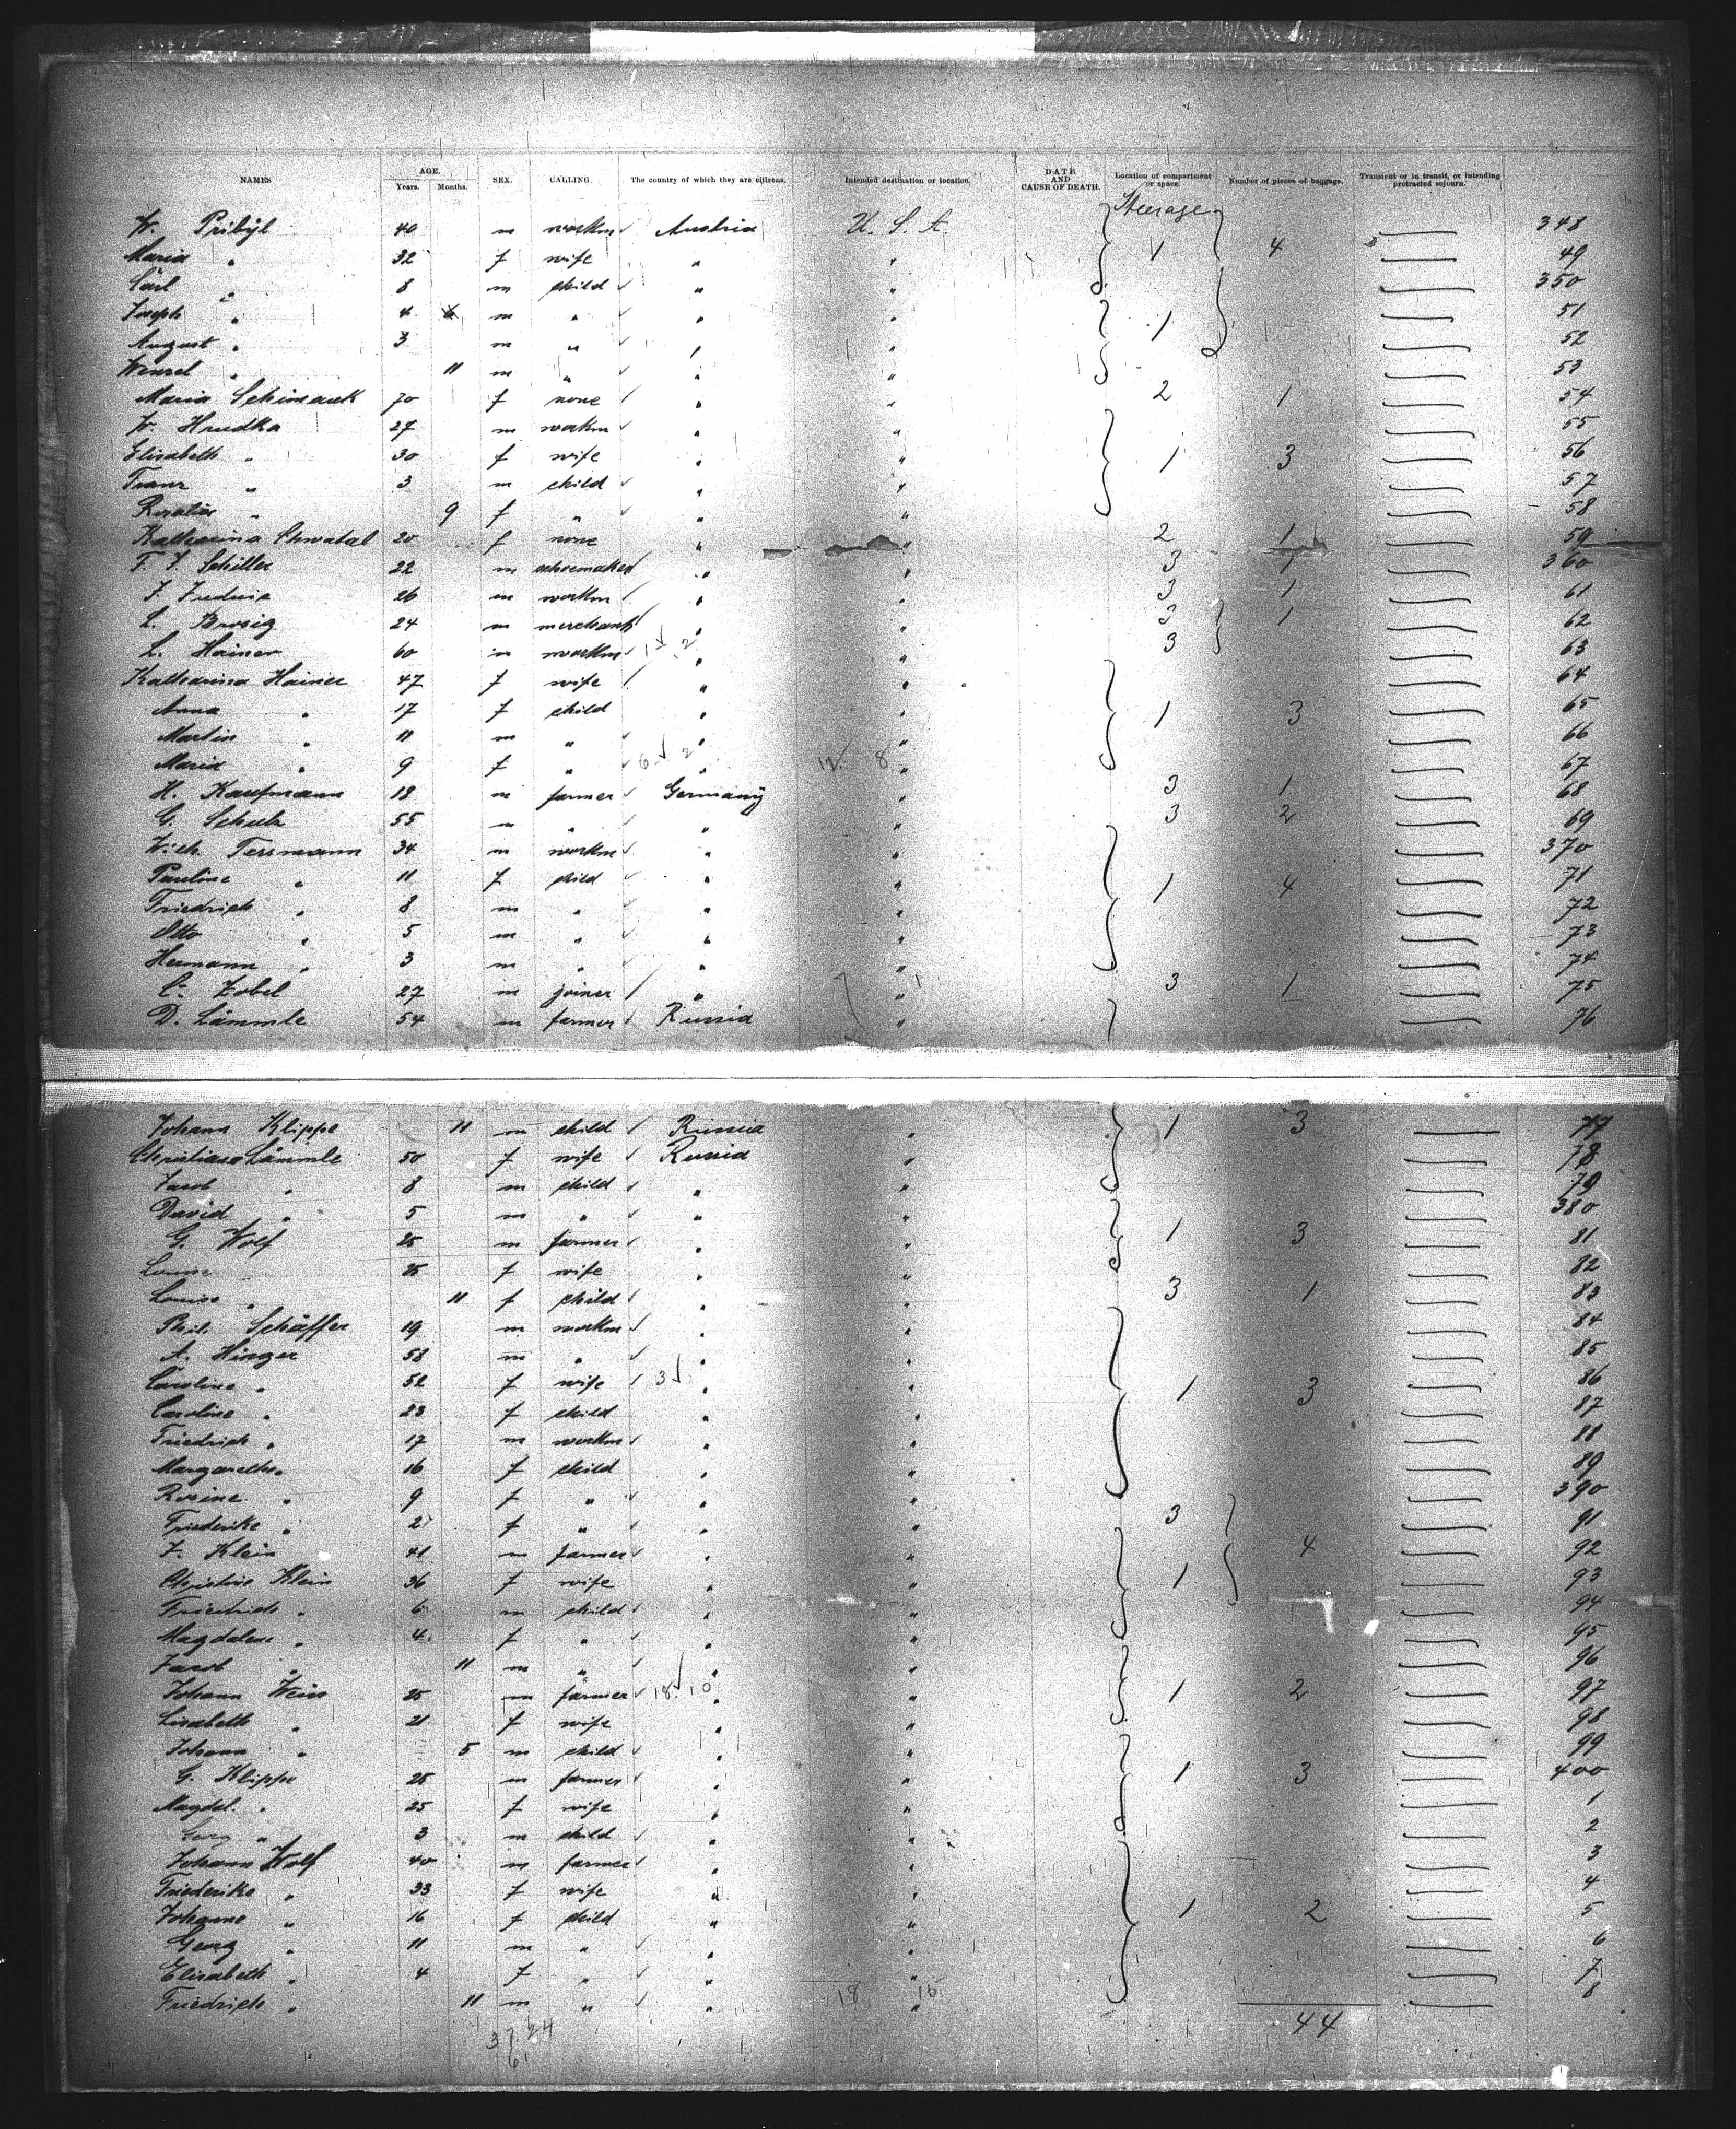 NAMES AGE. Years. Months. SEX. CALLING. The country of which they are citizens. Intended destination or location. DATE AND CAUSE OF DEATH. Location of compartment or space. Number of pieces of baggage. Transient or in transit, or intending protracted sojourn.
Steerage
W. Pribyl 40 m workm Austria U. S. A. 348
Maria " 32 f wife " " 1 4 49
Carl " 8 m child " " 350
Joseph " 4 m " " " 1 51
August " 3 m " " " 52
Wenzel " 11 m " " " 53
Maria 70 f none " " 2 1 54
W. Hrudka 27 m workm " " 55
Elisabeth " 30 f wife " " 1 3 56
Franz " 3 m child " " 57
Rosalia " 9 f " " " 58
Katharina Chwatal 20 f none " " 2 1 59
F. J. Schiller 22 m schoemaker " " 3 1 360
26 m workm " " 3 1 61
L. Brosig 24 m merchant " " 3 1 62
L. Hainer 60 m workm " " 3 63
Katharina Hainer 47 f wife " " 64
Anna " 17 f child " " 1 3 65
Martin " 11 m " " " 66
Maria " 9 f " " " 67
H. Kaufmann 18 m farmer Germany " 3 1 68
G. Schulz 55 m " " " 3 2 69
Wilh. Tersmann 34 m workm " " 370
Pauline " 11 f child " " 1 4 71
Friedrich " 8 m " " " 72
Otto " 5 m " " " 73
Hermann " 3 m " " " 74
C. Zobel 27 m joiner " " 3 1 75
D. Lämmle 54 m farmer Russia " 76
Johann Klippe 11 m child Russia " 1 3 77
Christiana Lämmle 50 f wife Russia " 78
Jacob " 8 m child " " 79
David " 5 m " " " 380
G. Wolf 25 m farmer " " 1 3 81
Louise " 25 f wife " " 82
Louise " 11 f child " " 3 1 83
Phil. Schäffer 19 m workm " " 84
A. Hinger 58 m " " " 85
Caroline " 52 f wife " " 1 3 86
Caroline " 23 f child " " 87
Friedrich " 17 m workm " " 88
Margareth " 16 f child " " 89
Rosine " 9 f " " " 390
Friederike " 2 f " " " 3 91
F. Klein 41 m farmer " " 4 92
Christine Klein 36 f wife " " 1 93
Friedrich " 6 m child " " 94
Magdalene " 4 f " " " 95
Jacob " 11 m " " " 96
Johann Weiss 25 m farmer " " 1 2 97
Lisabeth " 21 f wife " " 98
Johann " 5 m child " " 99
G. Klippe 25 m farmer " " 1 3 400
Magdal. " 25 f wife " " 1
Georg " 3 m child " " 2
Johann Wolf 40 m farmer " " 3
Friederike " 33 f wife " " 4
Johanne " 16 f child " " 1 2 5
Georg " 11 m " " " 6
Elisabeth " 4 f " " " 7
Friedrich " 11 m " " " 8
44